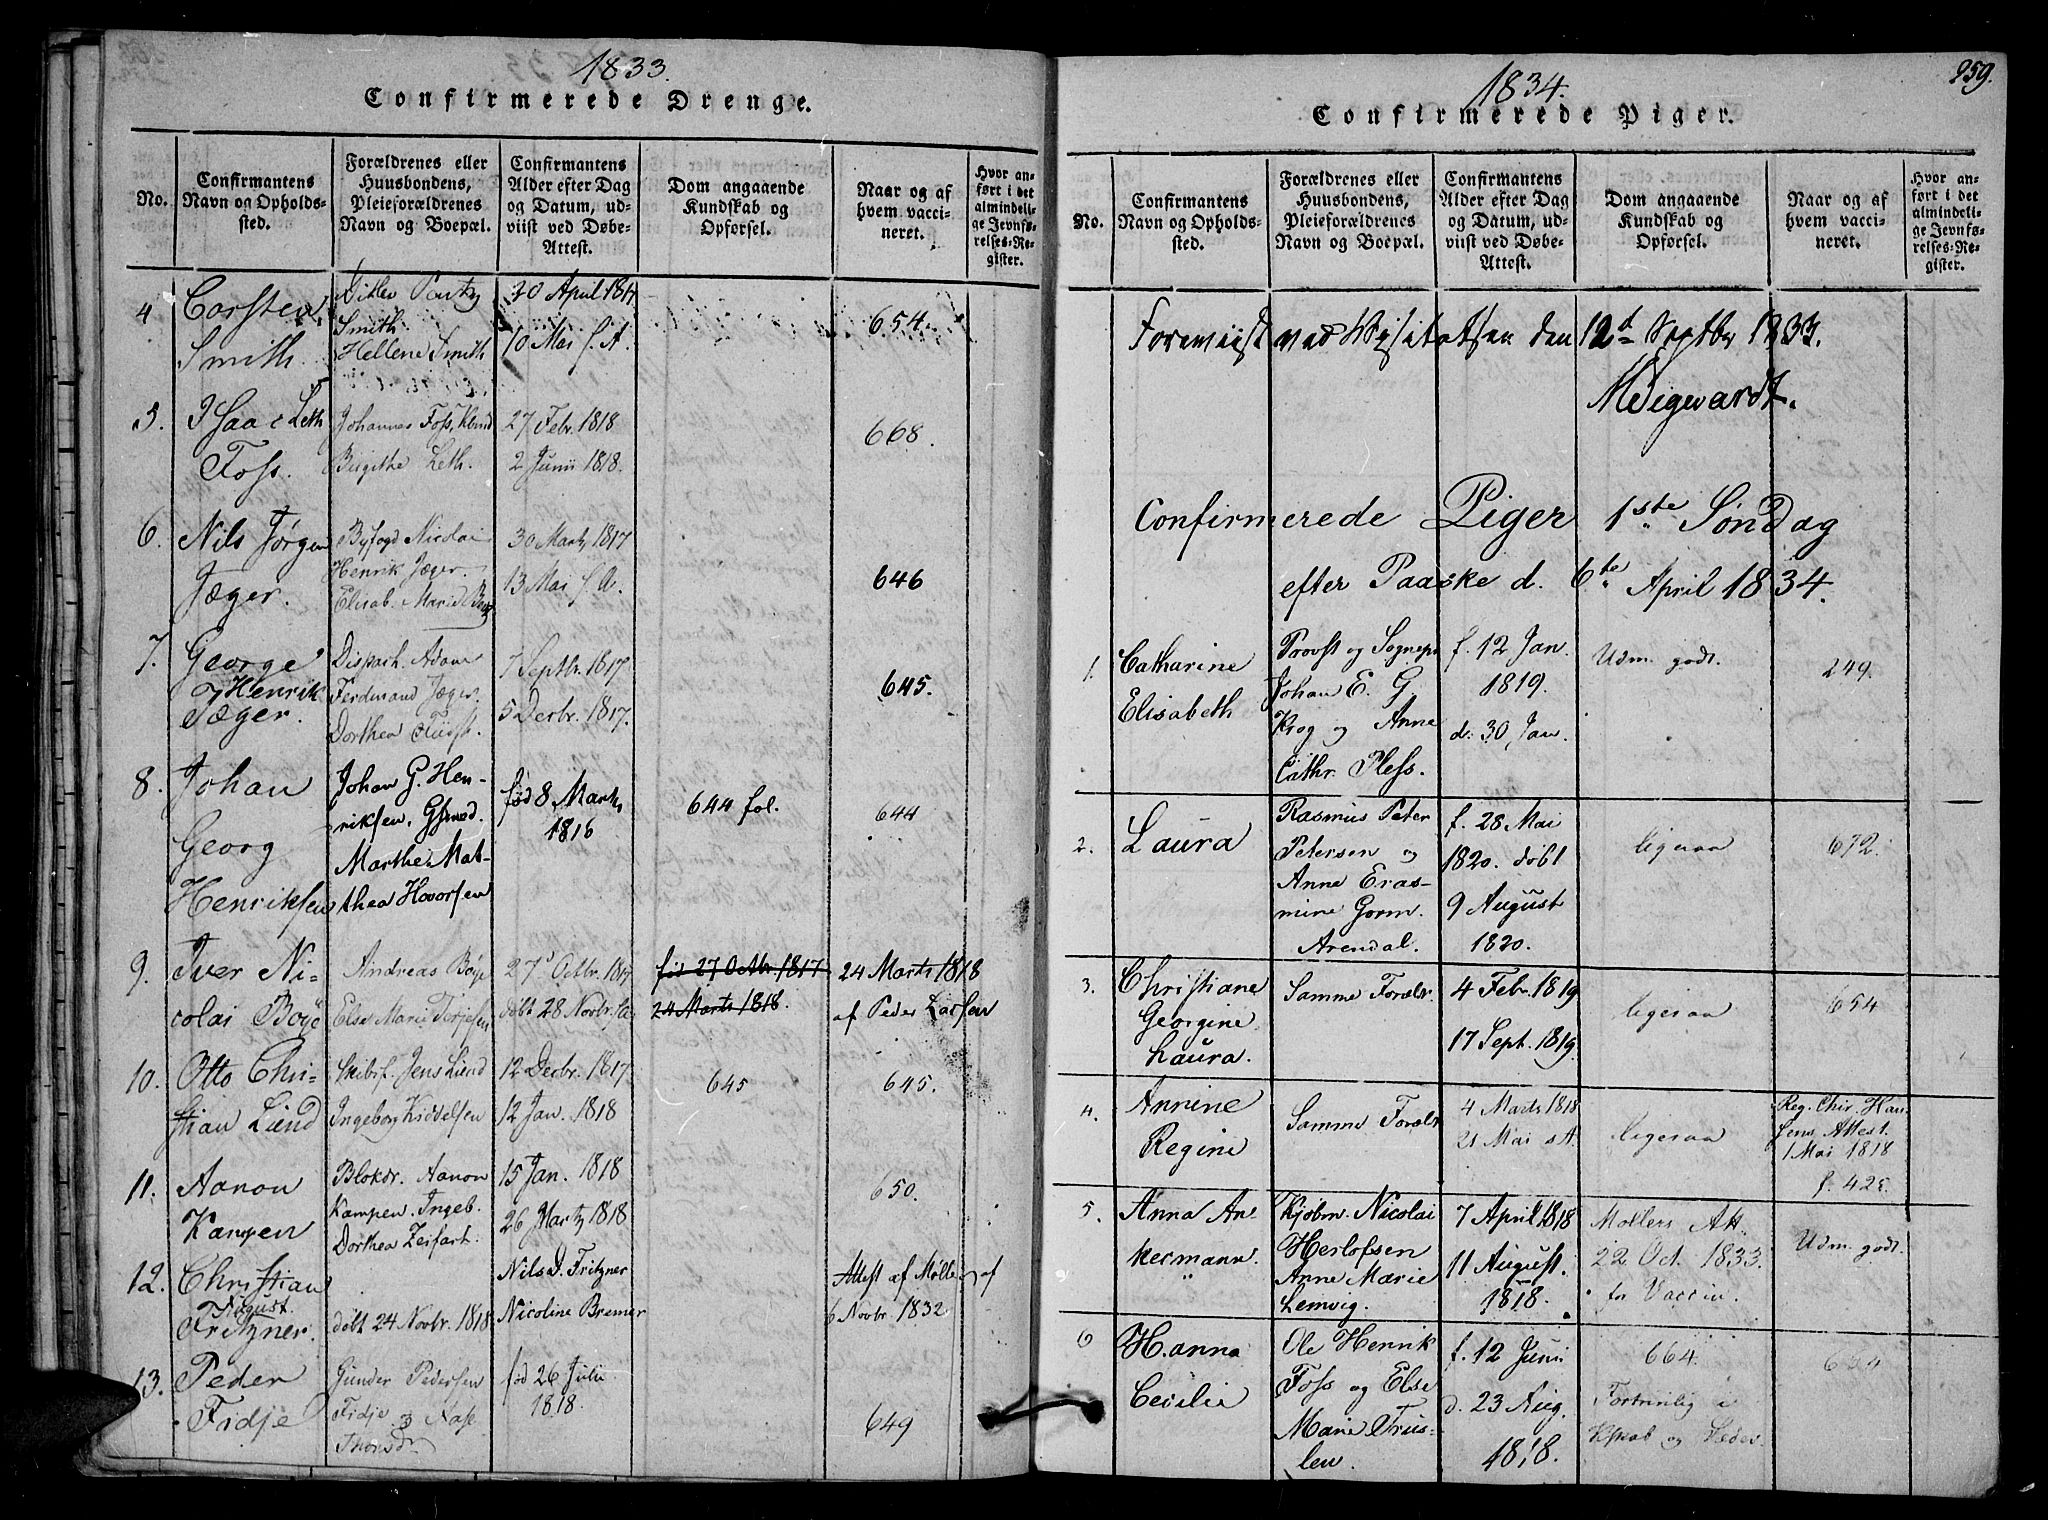 1833.
Confirmerede Drenge.
No.
Confirmantens
Navn og Opholds-
sted.
Forældrenes eller
Huusbondens,
Pleieforældrenes
Navn og Boepæl.
Confirmantens
Alder efter Dag
og Datum, ud-
viist ved Døbe-
Attest.
Dom angaaende
Kundskab og
Opførsel.
Naar og af
hvem vacci-
neret.
Hvor an-
ført i det
almindeli-
ge Jevnfø-
relses-Re-
gister.
4
Carsten
Smith.
Ditlev
Smith
Hellene Smith
20 April
10 Mai s. A.
654.
5.
Isaac Leth
Foss.
Johannes Foss,
Birgithe Leth.
27 Febr. 1818
2 Junii 1818.
668.
6.
Nils Jørgen
Jæger.
Byfogd Nicolai
Henrik Jæger.
Elisab. Marie
30 Marty 1817
13 Mai s. A.
646
7.
George
Henrik
Jæger.
Dispach. Adam
Ferdinand Jæger.
Dorthea
7 Septbr. 1817
5 Decbr. 1817.
645.
8.
Johan
Georg
Henriksen
Johan G. Hen-
riksen,
Marthe Mat-
thea Hovorsen
fød 8 Marts
1816
644 fol.
644
9.
Iver Ni-
colai Boye
Andreas Boye
Else Marie Terjesen
27 Octbr. 1817
døbt 28 Novbr.
fød 27 Octbr. 1817
24 Marts 1818.
24 Marts 1818
af Peder Larsen
10.
Otto Chri-
stian Lund
Skibsf. Jens Lund
Ingeborg Kittelsen
12 Decbr. 1817
12 Jan. 1818
645
645.
11.
Aanon
Kampen
Blokdr. Aanon
Kampen. Ingeb.
Dorthea Zeifart.
15 Jan. 1818
26 Marty 1818
650.
12.
Christian
August.
Fritzner.
døbt 24 Novbr. 1818
Nils D. Fritzner
Nicoline Bremer
Attest af Møller af
6 Novbr. 1832
13.
Peder
Fidje
Gunder Pedersen
Fidje og Aase
fød 26 Julii
1818.
649
259.
1834.
Confirmerede Piger.
No.
Confirmantens
Navn og Opholds-
sted.
Forældrenes eller
Huusbondens,
Pleieforældrenes
Navn og Boepæl.
Confirmantens
Alder efter Dag
og Datum, ud-
viist ved Døbe-
Attest.
Dom angaaende
Kundskab og
Opførsel.
Naar og af
hvem vacci-
neret.
Hvor an-
ført i det
almindeli-
ge Jevnfø-
relses-Re-
gister.
Foreviist ved Visitatsen den 12te Septbr 1833.
Confirmerede Piger 1ste Søndag
efter Paaske d. 6te April 1834.
1.
Catharine
Elisabeth
Provst og Sognepr.
Johan E. G.
Krog og Anne
Cathr. Pless.
f. 12 Jan.
1819.
d. 30 Jan.
Udm. godt.
249.
2.
Laura
Rasmus Peter
Petersen og
Anne Eras-
mine Gorm.
Arendal.
f. 28 Mai
1820. døbt
9 August
1820.
ligesaa
672.
3.
Christiane
Georgine
Laura.
Samme Forældr.
4 Febr. 1819
17 Sept. 1819.
ligesaa
654
4.
Annine
Regine
Samme Forældr.
4 Marts 1818
21 Mai s A.
ligesaa
Reg. Chir. Han-
sens Attest.
1 Mai 1818
f. 425.
5.
Anna An-
kermann.
Kjøbm. Nicolai
Herlofsen
Anne Marie
Lemvig.
7 April 1818
11 August.
1818.
Møllers Att.
22 Oct. 1833.
for Vaccin.
Udm. godt.
6
Hanna
Cecilie
Ole Henrik
Foss og Else
Marie Trus-
len.
f. 12 Junii
d. 23 Aug.
1818.
664.
Fortrinlig i
Kskab og Sæder